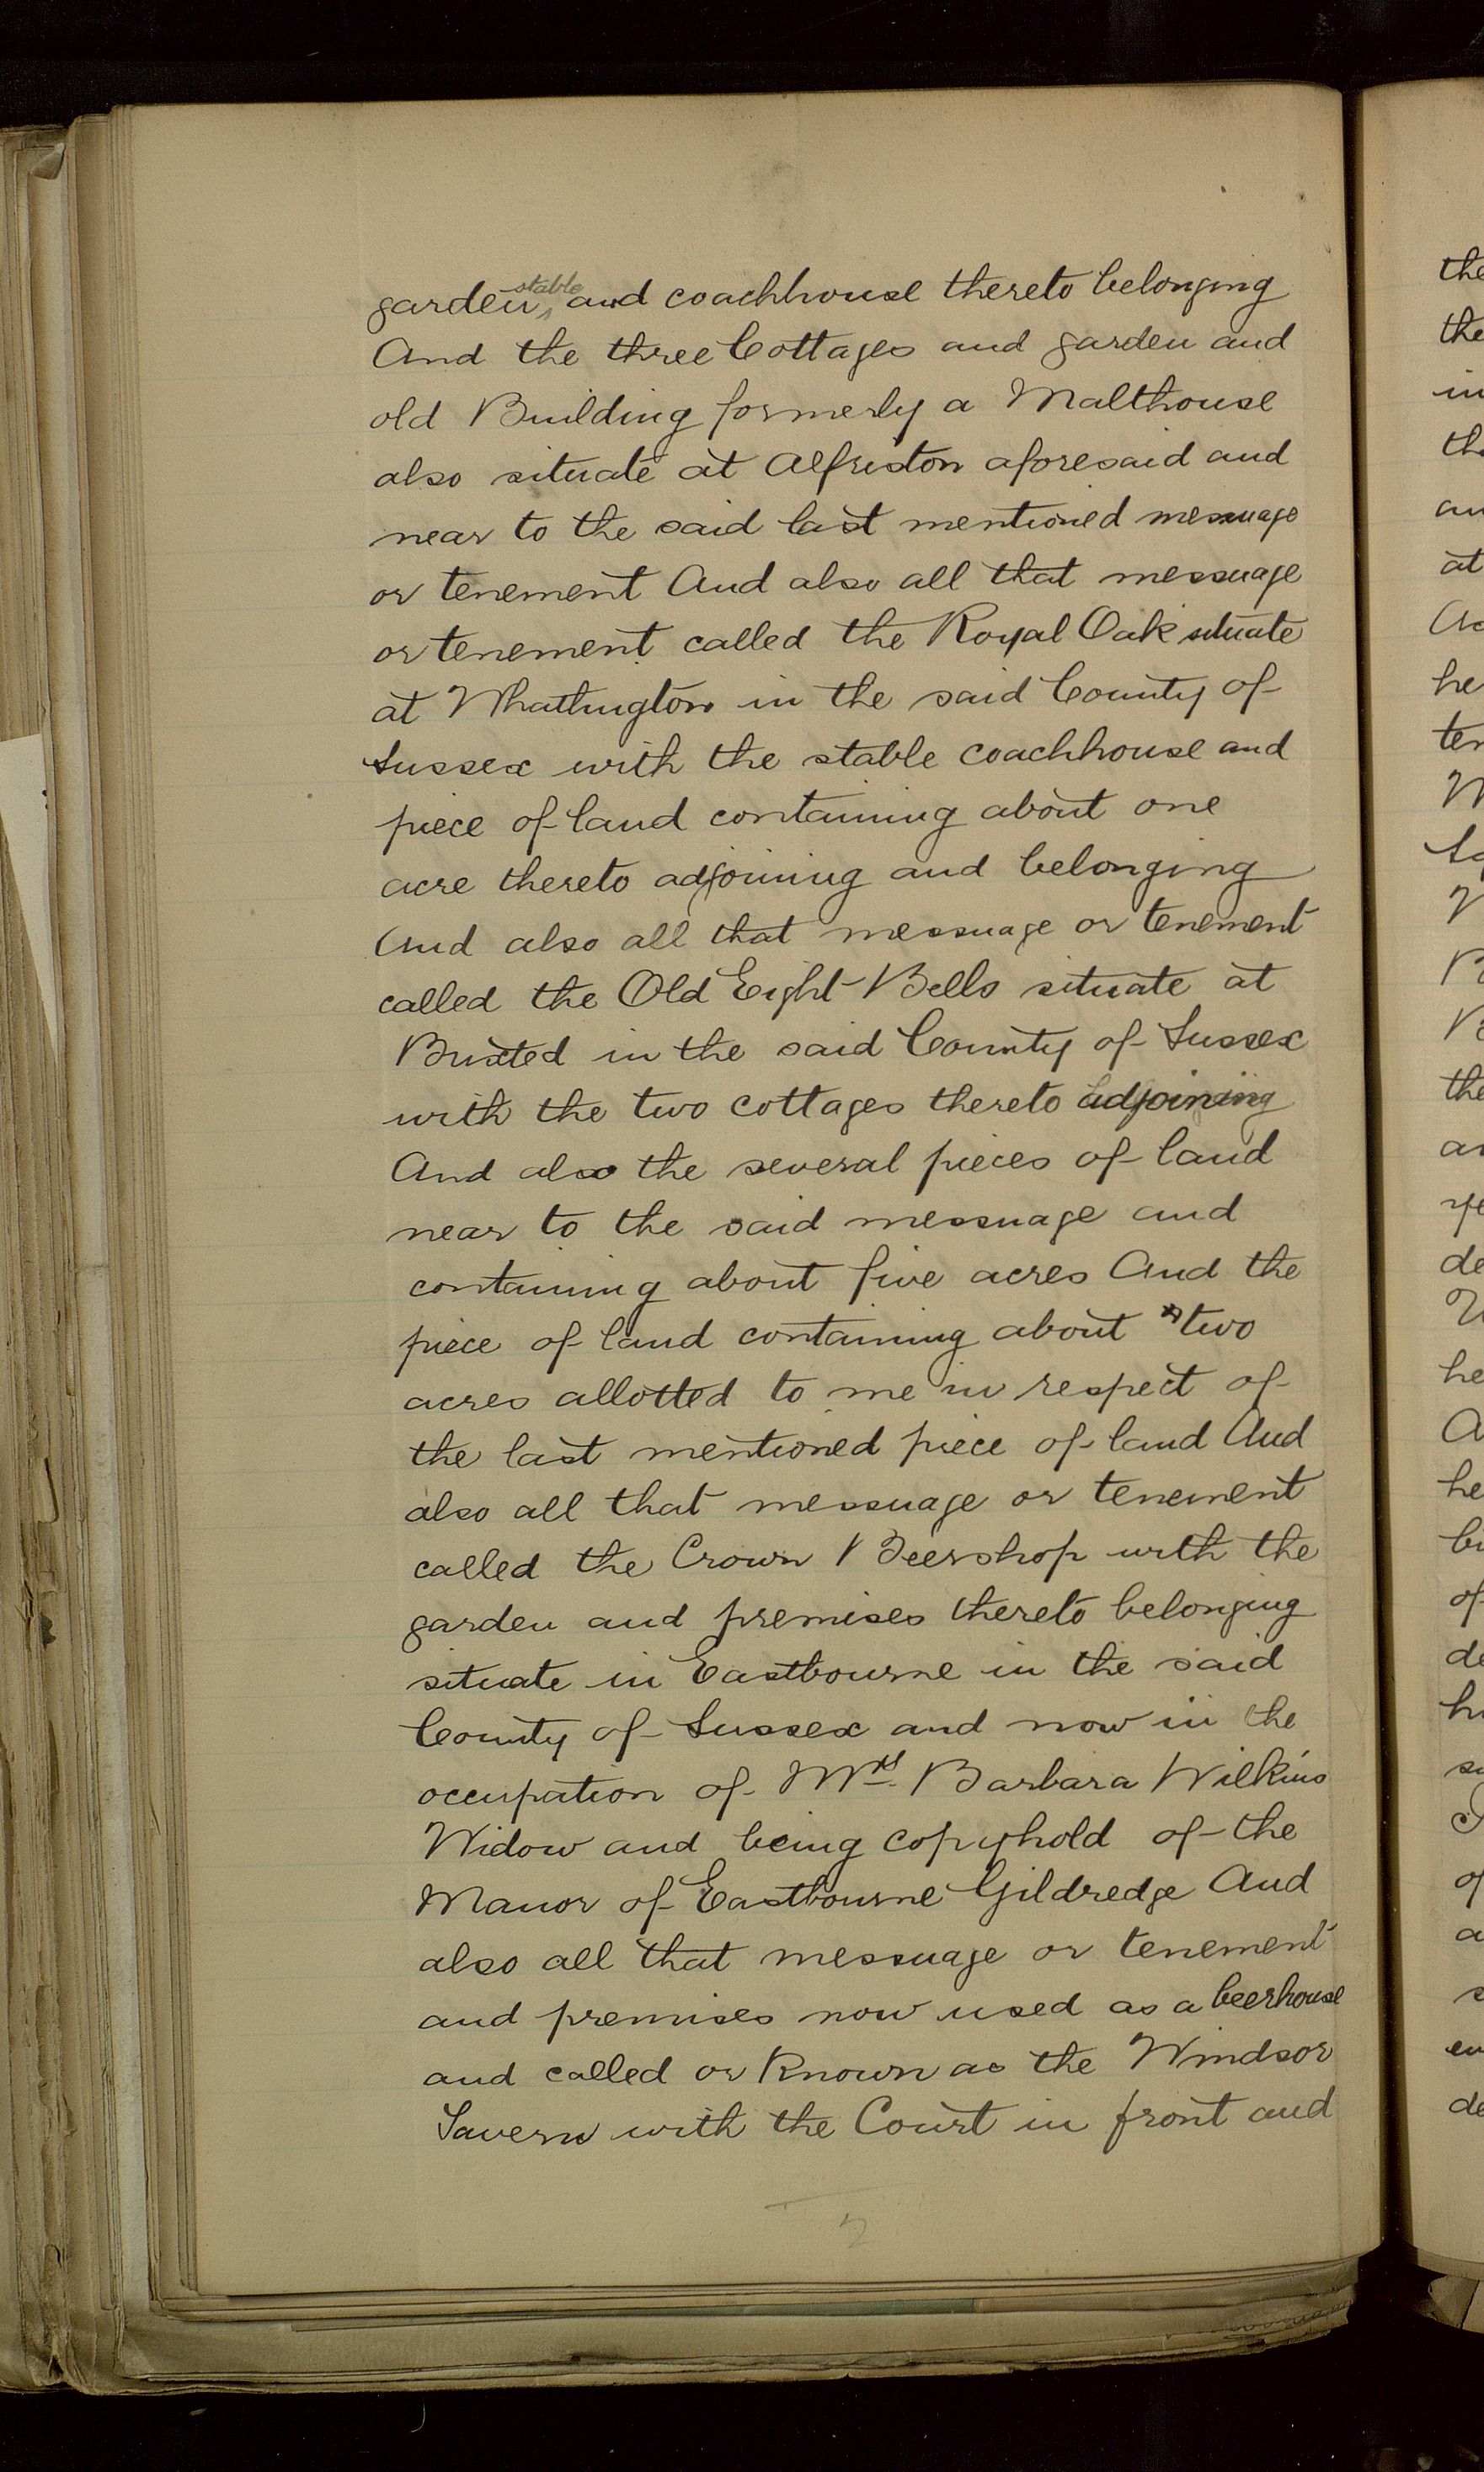 garden, stable and coachhouse thereto belonging
And the three Cottages and garden and
old Building formerly a Malthouse
also situate at Alfriston aforesaid and
near to the said last mentioned messuage
or tenement And also all that messuage
or tenement called the Royal Oak situate
at Whatlington in the said County of
Sussex with the stable coachhouse and
piece of land containing about one
acre thereto adjoining and belonging
And also all that messuage or tenement
called the Old Eight Bells situate at
Buxted in the said County of Sussex
with the two cottages thereto adjoining
And also the several pieces of land
near to the said messuage and
containing about five acres And the
piece of land containing about two
acres allotted to me in respect of
the last mentioned piece of land And
also all that messuage or tenement
called the Crown Beershop with the
garden and premises thereto belonging
situate in Eastbourne in the said
County of Sussex and now in the
occupation of Mrs. Barbara Wilkins
Widow and being copyhold of the
Manor of Eastbourne Gildredge And
also all that messuage or tenement
and premises now used as a beerhouse
and called or known as the Windsor
Tavern with the Court in front and